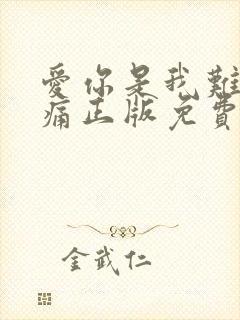 愛你是我難
痛正版免費
金武仁